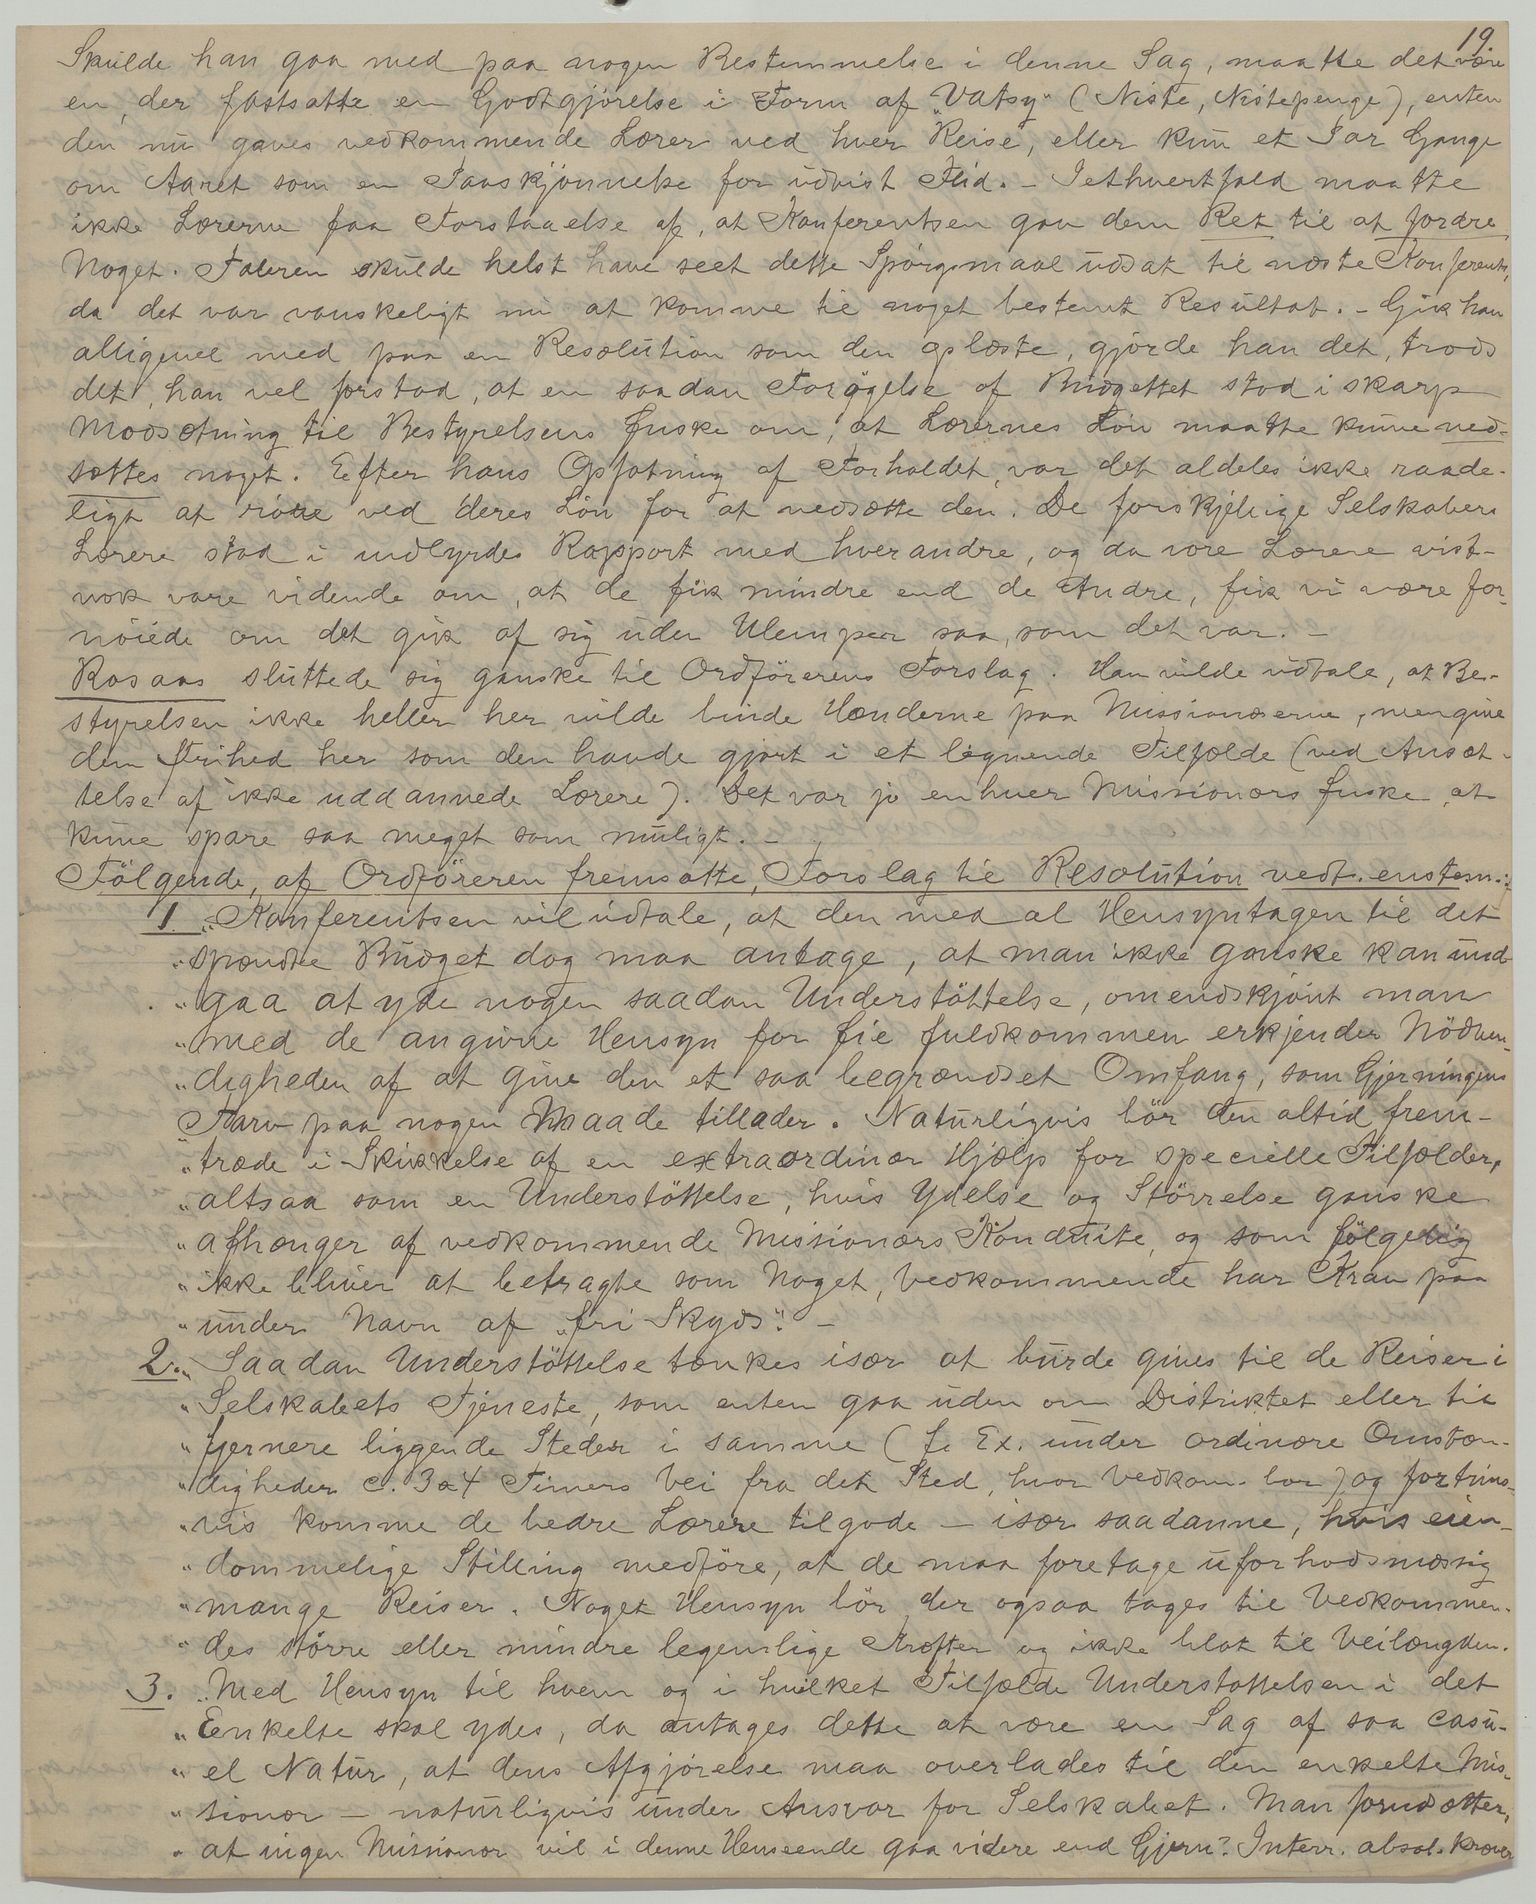 19.
Skulde han gaa med paa nogen Bestemmelse i denne Sag, maatte det være
en, der fastsatte en Godtgjörelse i Form af "Vatsy" (Niste, Nistepenge), enten
den nu gaves vedkommende Lærer ved hver Reise, eller kun et Par Gange
om Aaret som en Paaskjönnelse for udvist Flid. - I ethvert fald maatte
ikke Lærerne faa Forstaaelse af, at Konferentsen gav dem Ret til at fordre
Noget. Taleren skulde helst have seet dette Spörgsmaal udsat til næste Konferents,
da det var vanskeligt nu at komme til noget bestemt Resultat. - Gik han
alligevel med paa en Resolution som den oplæste, gjorde han det, trods
det, han vel forstod, at en saadan Forögelse af Budgettet stod i skarp
Modsætning til Bestyrelsens Önske om, at Lærernes Lön maatte kunne ned-
sættes noget. Efter hans Opfatning af Forholdet, var det aldeles ikke raade-
ligt at röre ved deres Lön for at nedsætte den. De forskjellige Selskabers
Lærere stod i indbyrdes Rapport med hverandre, og da vore Lærere vist-
nok vare vidende om, at de fik mindre end de Andre, fik vi være for-
nöiede om det gik af sig uden Ulemper saa, som det var. -
Rosaas sluttede sig ganske til Ordförerens Forslag. Han vilde udtale, at Be-
styrelsen ikke heller her vilde binde Hænderne paa Missionærerne, men give
dem Frihed her som den havde gjort i et lignende Tilfælde (ved Ansæt-
telse af ikke uddannede Lærere). Det var jo enhver Missionærs Önske, at
kunne spare saa meget som muligt. -
Fölgende, af Ordföreren fremsatte, Forslag til Resolution vedt. enstem.:
1. "Konferentsen vil udtale, at den med al Hensyntagen til det
" spændte Budget dog maa antage, at man ikke ganske kan und-
" gaa at yde nogen saadan Understöttelse, omendskjönt man
" med de angivne Hensyn for Öie fuldkommen erkjender Nödven-
" digheden af at give den et saa begrændset Omfang, som Gjerningens
" Tarv paa nogen Maade tillader. Naturligvis bör den altid frem-
" træde i Skikkelse af en extraordinær Hjælp for specielle Tilfælder,
" altsaa som en Understöttelse, hvis Ydelse og Störrelse ganske
" afhænger af vedkommende Missionærs Konduite, og som fölgelig
" ikke bliver at betragte som Noget, Vedkommende har Krav paa
" under Navn af "fri Skyds". -
2. " Saadan Understöttelse tænkes især at burde gives til de Reiser i
" Selskabets Tjeneste, som enten gaa uden om Distriktet eller til
" fjernere liggende Steder i samme (f. Ex. under ordinære Omstæn-
" digheder c. 3 a 4 Timers Vei fra det Sted, hvor Vedkom. bor) og fortrins-
" vis komme de bedre Lærere tilgode - især saadanne, hvis eien-
" dommelige Stilling medföre, at de maa foretage uforholdsmæssig
" mange Reiser. Noget Hensyn bör der ogsaa tages til Vedkommen-
" des större eller mindre legemlige Kræfter og ikke blot til Veilængden.
3. " Med Hensyn til hvem og i hvilket Tilfælde Understöttelsen i det
" Enkelte skal ydes, da antages dette at være en Sag af saa casu-
" el Natur, at dens Afgjörelse maa overlades til den enkelte Mis-
" sionær - naturligvis under Ansvar for Selskabet. Man forudsætter,
" at ingen Missionær vil i denne Henseende gaa videre end Gjern? Interr. absol. kræver